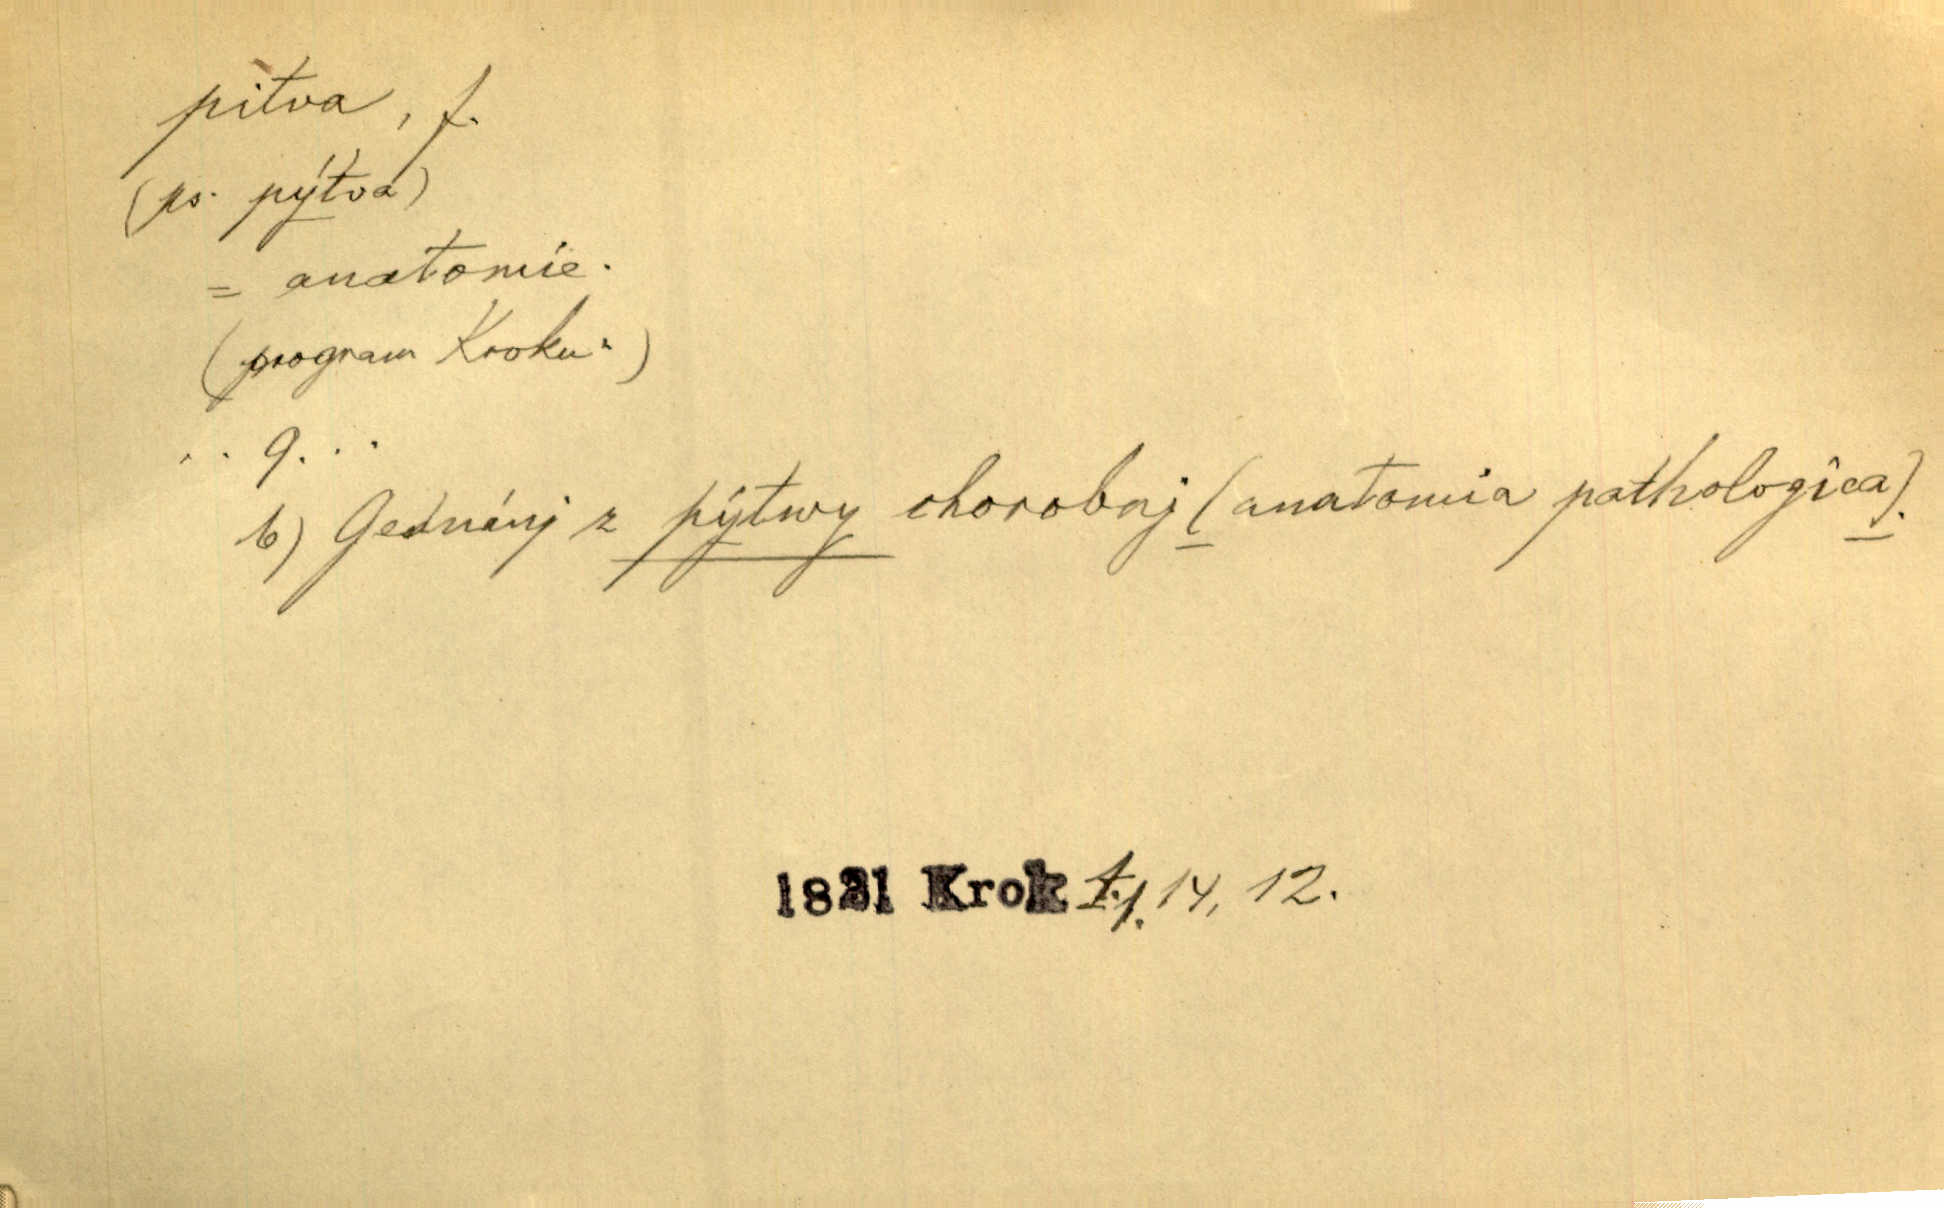 pitva, f.
(ps. pýtva)
= anatomie.
(program Kroku.)
. . 9. . .
b) Gednánj z pýtwy chorobnj (anatomia pathologica).
1821 Krok I.1. 14, 12.